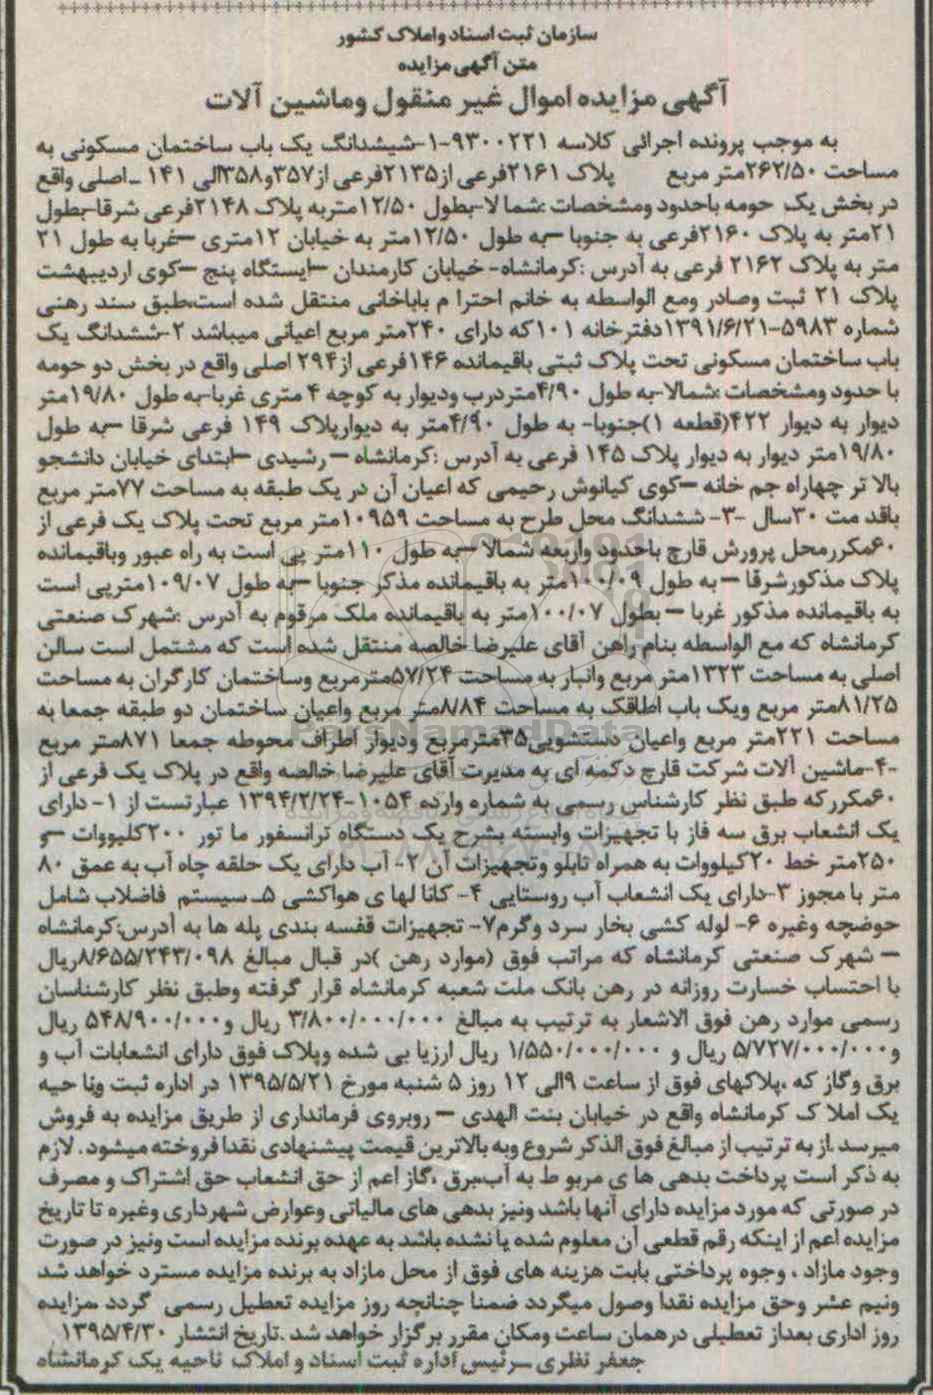 سازمان ثبت اسناد واملاک کشور
متن آگهی مزایده
آگهی مزایده اموال غیر منقول وماشین آلات
به موجب پرونده اجرائی کلاسه ۹۳۰۰۲۲۱-۱-شیشدانگ یک باب ساختمان مسکونی به
مساحت ۲۶۲/۵۰متر مربع پلاک ۲۱۶۱فرعی از۲۱۳۵فرعی از۳۵۷و۳۵۸الی ۱۴۱ ـ اصلی واقع
در بخش یک حومه باحدود ومشخصات :شما لا-بطول ۱۲/۵۰متربه پلاک ۲۱۴۸فرعی شرقا-بطول
۲۱متر به پلاک ۲۱۶۰فرعی به جنوبا –به طول ۱۲/۵۰متر به خیابان ۱۲متری –غربا به طول ۲۱
متر به پلاک ۲۱۶۲ فرعی به آدرس :کرمانشاه- خیابان کارمندان –ایستگاه پنج –کوی اردیبهشت
پلاک ۲۱ ثبت وصادر ومع الواسطه به خانم احترا م باباخانی منتقل شده است،طبق سند رهنی
شماره ۵۹۸۳-۱۳۹۱/۶/۲۱دفترخانه ۱۰۱که دارای ۲۴۰متر مربع اعیانی میباشد ۲-ششدانگ یک
باب ساختمان مسکونی تحت پلاک ثبتی باقیمانده ۱۴۶فرعی از۲۹۴ اصلی واقع در بخش دو حومه
با حدود ومشخصات :شمالا-به طول ۴/۹۰متردرب ودیوار به کوچه ۴ متری غربا-به طول ۱۹/۸۰متر
دیوار به دیوار ۴۲۲(قطعه ۱)جنوبا- به طول ۴/۹۰متر به دیوارپلاک ۱۴۹ فرعی شرقا –به طول
۱۹/۸۰متر دیوار به دیوار پلاک ۱۴۵ فرعی به آدرس :کرمانشاه – رشیدی –ابتدای خیابان دانشجو
بالا تر چهاراه جم خانه –کوی کیانوش رحیمی که اعیان آن در یک طبقه به مساحت ۷۷متر مربع
باقد مت ۳۰سال -۳- ششدانگ محل طرح به مساحت ۱۰۹۵۹متر مربع تحت پلاک یک فرعی از
۶۰مکررمحل پرورش قارچ باحدود واربعه شمالا –به طول ۱۱۰متر پی است به راه عبور وباقیمانده
پلاک مذکورشرقا – به طول ۱۰۰/۰۹متر به باقیمانده مذکر جنوبا –به طول ۱۰۹/۰۷مترپی است
به باقیمانده مذکور غربا – بطول ۱۰۰/۰۷متر به باقیمانده ملک مرقوم به آدرس :شهرک صنعتی
کرمانشاه که مع الواسطه بنام راهن آقای علیرضا خالصه منتقل شده است که مشتمل است سالن
اصلی به مساحت ۱۳۲۳متر مربع وانبار به مساحت ۵۷/۲۴مترمربع وساختمان کارگران به مساحت
۸۱/۲۵متر مربع ویک باب اطاقک به مساحت ۸/۸۴متر مربع واعیان ساختمان دو طبقه جمعا به
مساحت ۲۲۱متر مربع واعیان دستشویی۳۵مترمربع ودیوار اطراف محوطه جمعا ۸۷۱متر مربع
-۴-ماشین آلات شرکت قارچ دکمه ای به مدیرت آقای علیرضا خالصه واقع در پلاک یک فرعی از
۶۰مکررکه طبق نظر کارشناس رسمی به شماره وارده ۱۰۵۴-۱۳۹۴/۲/۲۴ عبارتست از ۱- دارای
یک انشعاب برق سه فاز با تجهیزات وابسته بشرح یک دستگاه ترانسفور ما تور ۲۰۰کلیووات –و
۲۵۰متر خط ۲۰کیلووات به همراه تابلو وتجهیزات آن ۲- آب دارای یک حلقه چاه آب به عمق ۸۰
متر با مجوز ۳-دارای یک انشعاب آب روستایی ۴- کانا لها ی هواکشی ۵ـ سیستم فاضلاب شامل
حوضچه وغیره ۶- لوله کشی بخار سرد وگرم۷- تجهیزات قفسه بندی پله ها به آدرس:کرمانشاه
– شهرک صنعتی کرمانشاه که مراتب فوق (موارد رهن )در قبال مبالغ ۸/۶۵۵/۲۴۳/۰۹۸ریال
با احتساب خسارت روزانه در رهن بانک ملت شعبه کرمانشاه قرار گرفته وطبق نظر کارشناسان
رسمی موارد رهن فوق الاشعار به ترتیب به مبالغ ۳/۸۰۰/۰۰۰/۰۰۰ ریال و۵۴۸/۹۰۰/۰۰۰ ریال
و۵/۷۲۷/۰۰۰/۰۰۰ ریال و ۱/۵۵۰/۰۰۰/۰۰۰ ریال ارزیا بی شده وپلاک فوق دارای انشعابات آب و
برق وگاز که ،پلاکهای فوق از ساعت ۹الی ۱۲ روز ۵ شنبه مورخ ۱۳۹۵/۵/۲۱ در اداره ثبت ونا حیه
یک املا ک کرمانشاه واقع در خیابان بنت الهدی – روبروی فرمانداری از طریق مزایده به فروش
میرسد .از به ترتیب از مبالغ فوق الذکر شروع وبه بالاترین قیمت پیشنهادی نقدا فروخته میشود. لازم
به ذکر است پرداخت بدهی ها ی مربو ط به آب،برق ،گاز اعم از حق انشعاب حق اشتراک و مصرف
در صورتی که مورد مزایده دارای آنها باشد ونیز بدهی های مالیاتی وعوارض شهرداری وغیره تا تاریخ
مزایده اعم از اینکه رقم قطعی آن معلوم شده یا نشده باشد به عهده برنده مزایده است ونیز در صورت
وجود مازاد ، وجوه پرداختی بابت هزینه های فوق از محل مازاد به برنده مزایده مسترد خواهد شد
ونیم عشر وحق مزایده نقدا وصول میگردد ضمنا چنانچه روز مزایده تعطیل رسمی گردد ،مزایده
روز اداری بعداز تعطیلی درهمان ساعت ومکان مقرر برگزار خواهد شد .تاریخ انتشار ۱۳۹۵/۴/۳۰
جعفر نظری –رئیس اداره ثبت اسناد و املاک ناحیه یک کرمانشاه
ParsNamadData